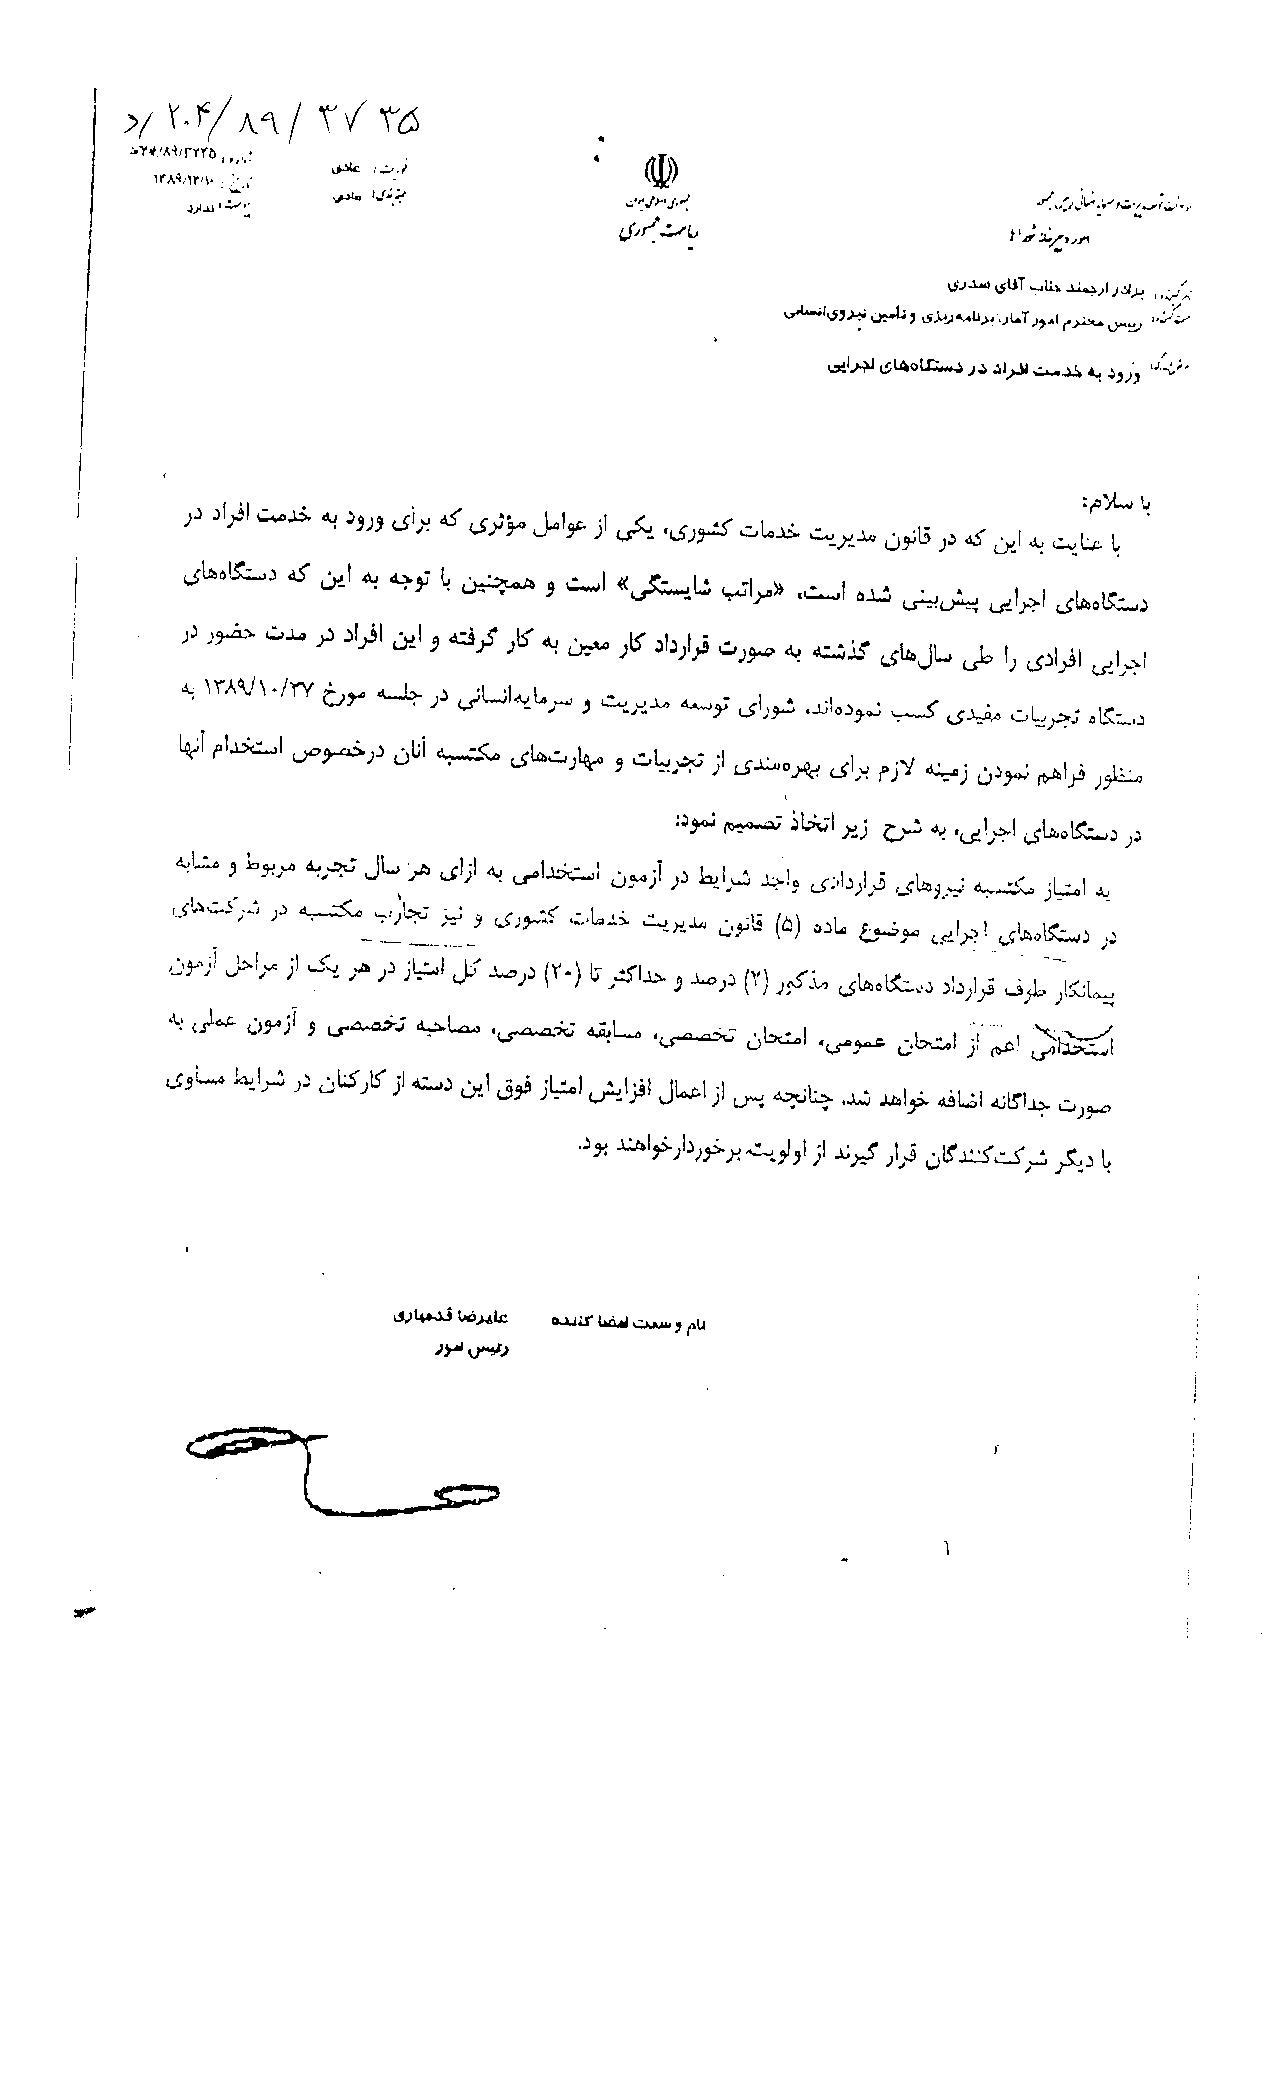 ۲۰۴/۸۹/۳۷۳۵/د
شماره: ۲۰۴/۸۹/۳۷۳۵/د
تاریخ: ۱۳۸۹/۱۲/۱۰
پیوست: ندارد
فوریت: عادی
طبقه‌بندی: عادی
جمهوری اسلامی ایران
ریاست جمهوری
معاونت توسعه مدیریت و سرمایه انسانی رییس جمهور
امور دبیرخانه شوراها
برادر ارجمند جناب آقای سدری
رییس محترم امور آمار، برنامه‌ریزی و تأمین نیروی انسانی
ورود به خدمت افراد در دستگاه‌های اجرایی
با سلام:
با عنایت به این که در قانون مدیریت خدمات کشوری، یکی از عوامل مؤثری که برای ورود به خدمت افراد در
دستگاه‌های اجرایی پیش‌بینی شده است، «مراتب شایستگی» است و همچنین با توجه به این که دستگاه‌های
اجرایی افرادی را طی سال‌های گذشته به صورت قرارداد کار معین به کار گرفته و این افراد در مدت حضور در
دستگاه تجربیات مفیدی کسب نموده‌اند، شورای توسعه مدیریت و سرمایه‌انسانی در جلسه مورخ ۱۳۸۹/۱۰/۲۷ به
منظور فراهم نمودن زمینه لازم برای بهره‌مندی از تجربیات و مهارت‌های مکتسبه آنان درخصوص استخدام آنها
در دستگاه‌های اجرایی، به شرح زیر اتخاذ تصمیم نمود:
به امتیاز مکتسبه نیروهای قراردادی واجد شرایط در آزمون استخدامی به ازای هر سال تجربه مربوط و مشابه
در دستگاه‌های اجرایی موضوع ماده (۵) قانون مدیریت خدمات کشوری و نیز تجارب مکتسبه در شرکت‌های
پیمانکار طرف قرارداد دستگاه‌های مذکور (۲) درصد و حداکثر تا (۲۰) درصد کل امتیاز در هر یک از مراحل آزمون
استخدامی اعم از امتحان عمومی، امتحان تخصصی، مسابقه تخصصی، مصاحبه تخصصی و آزمون عملی به
صورت جداگانه اضافه خواهد شد. چنانچه پس از اعمال افزایش امتیاز فوق این دسته از کارکنان در شرایط مساوی
با دیگر شرکت‌کنندگان قرار گیرند از اولویت برخوردارخواهند بود.
نام و سمت امضا کننده علیرضا قدمیاری
رئیس امور
۱